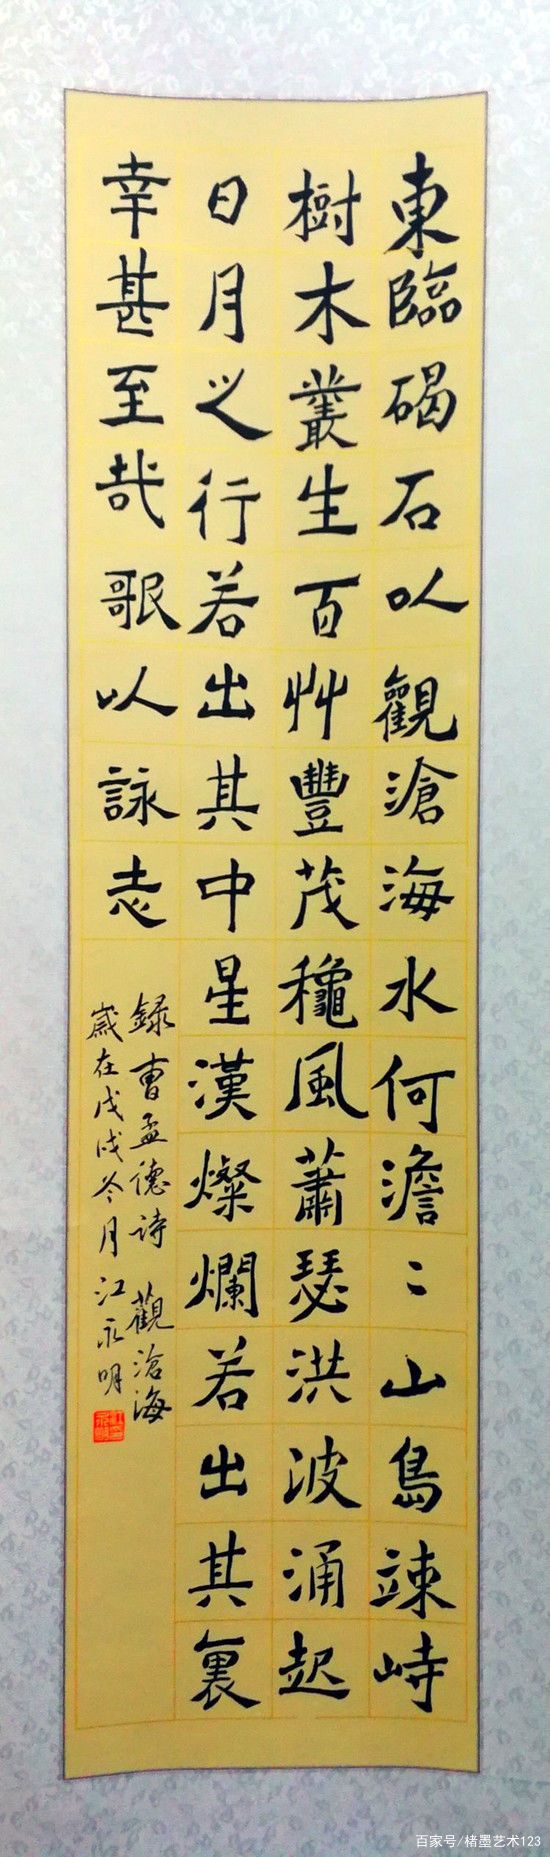 東臨碣石以觀滄海水何澹〻山島竦峙
樹木叢生百艸豐茂穐風蕭瑟洪波涌起
日月之行若出其中星漢燦爛若出其裏
幸甚至哉歌以詠志
録曹孟德诗 觀滄海
歲在戊戌冬月江永明
百家号/楮墨艺术123